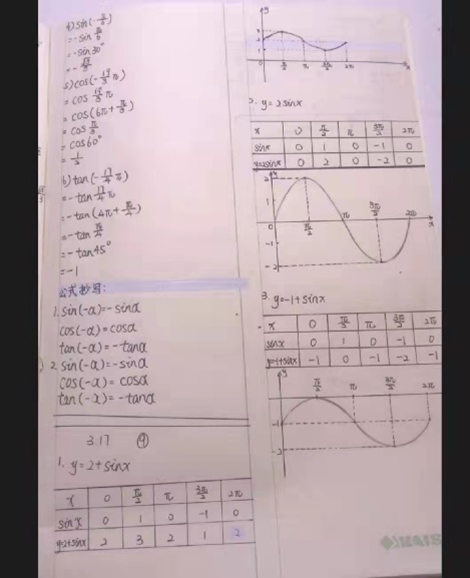 4) sin(-π/6)
=-sin π/6
=-sin30°
5) cos(-17/3 π)
=cos 17/3 π
=cos(6π+π/3)
=cos π/3
=cos60°
=1/2
6) tan(-17/4 π)
=-tan 17/4 π
=-tan(4π+π/4)
=-tan π/4
=-tan45°
=-1
公式抄写:
1. sin(-α)=-sinα
cos(-α)=cosα
tan(-α)=-tanα
2. sin(-α)=-sinα
cos(-α)=cosα
tan(-α)=-tanα
3.17 ④
1. y=2+sinx
x 0 π/2 π 3π/2 2π
sinx 0 1 0 -1 0
y=2+sinx 2 3 2 1 2
y
3
2
1
π/2 π 3π/2 2π x
2. y=2sinx
x 0 π/2 π 3π/2 2π
sinx 0 1 0 -1 0
y=2sinx 0 2 0 -2 0
y
2
1
0 π/2 π 3π/2 2π x
-1
-2
3. y=-1+sinx
x 0 π/2 π 3π/2 2π
sinx 0 1 0 -1 0
y=-1+sinx -1 0 -1 -2 -1
y
π/2 π 3π/2 2π
-1
-2